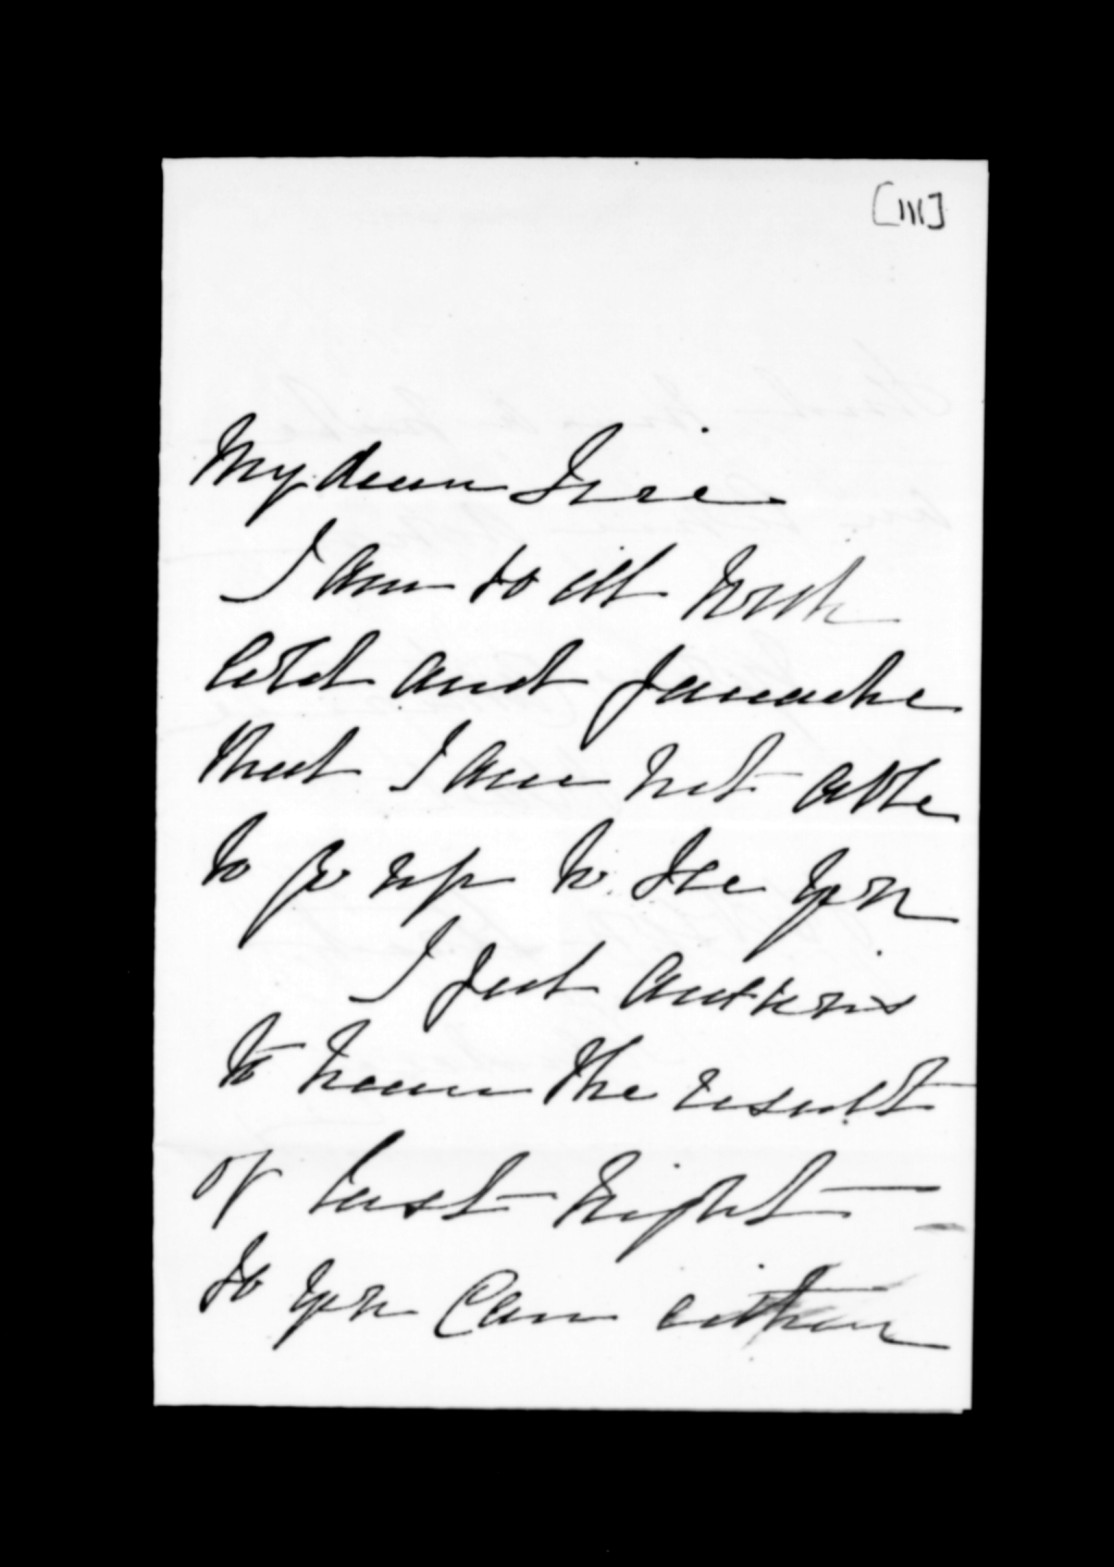 [III]
My dear Sir
I am so ill with
cold and faceache
that I am not able
to go up to see you
I feel anxious
to know the result
of last night —
so you can either